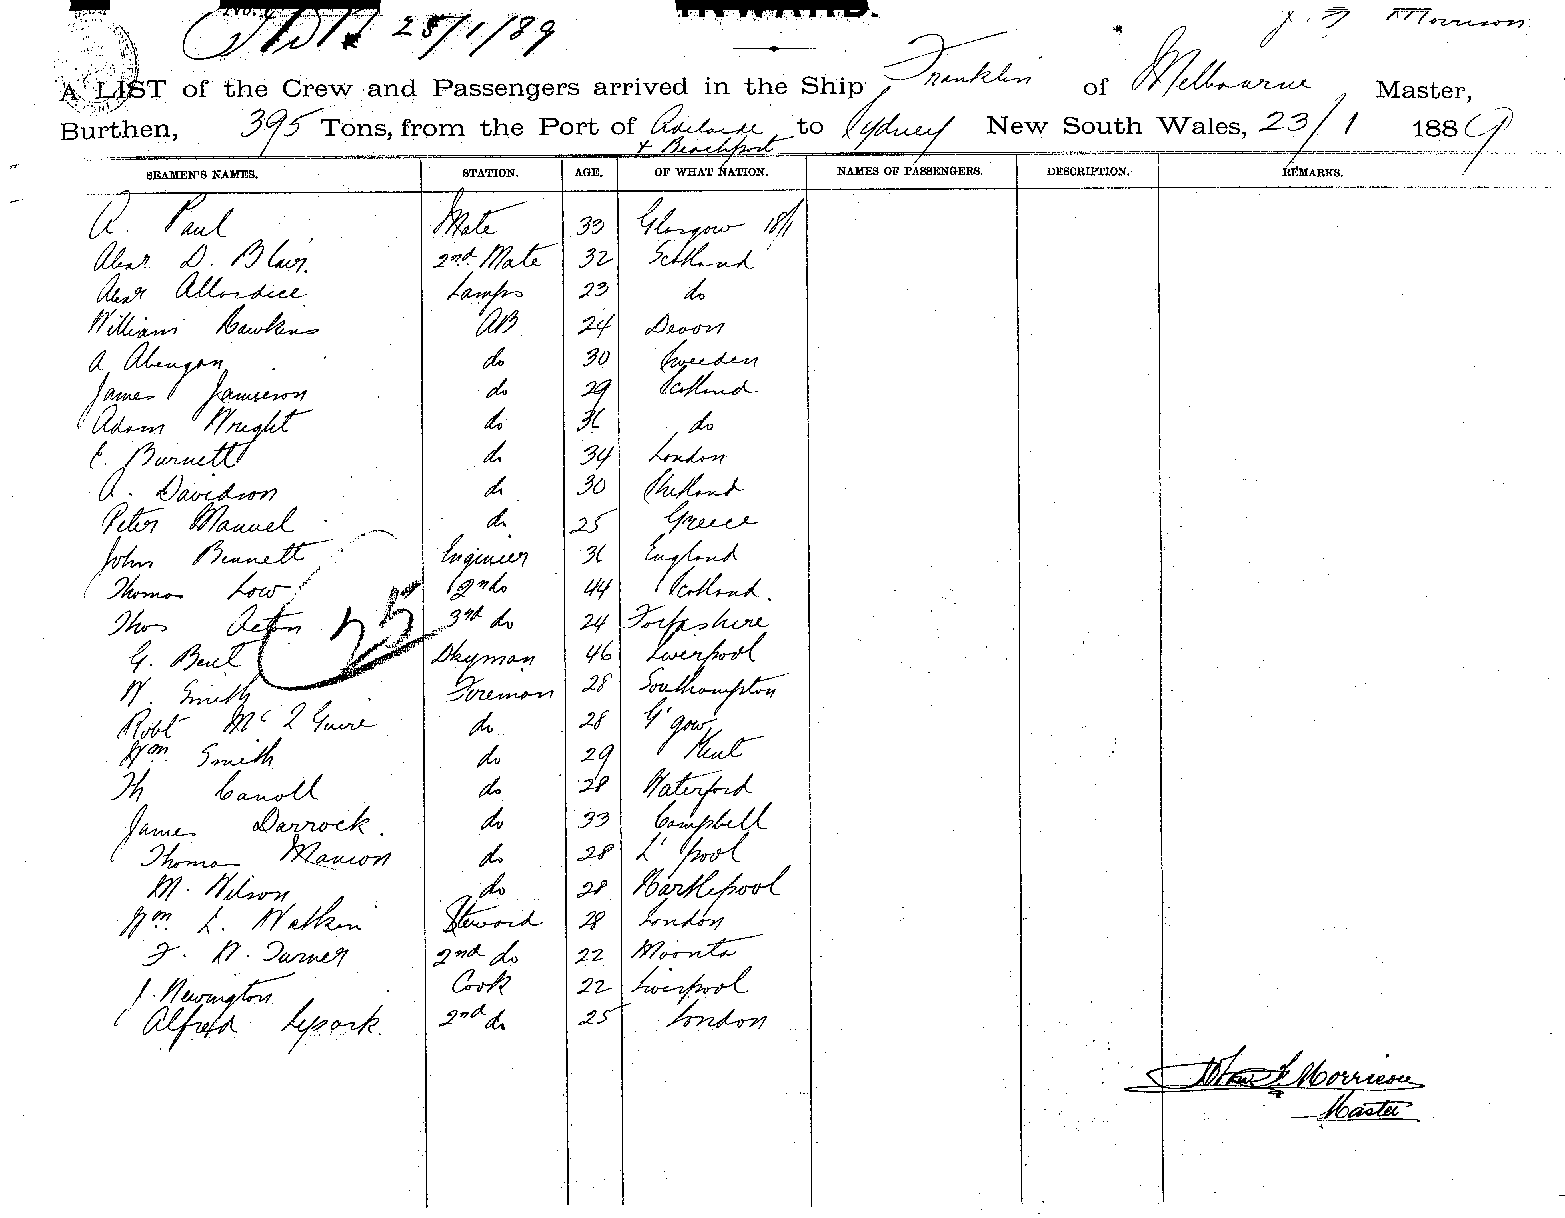 25/1/89
INWARD.
J. F. Morrison
A LIST of the Crew and Passengers arrived in the Ship Franklin of Melbourne, Master,
Burthen, 395 Tons, from the Port of Adelaide & Beachport to Sydney New South Wales, 23/1 1889
SEAMEN'S NAMES. STATION. AGE. OF WHAT NATION. NAMES OF PASSENGERS. DESCRIPTION. REMARKS.
A. Paul Mate 33 Glasgow
Alexr D. Blair. 2nd Mate 32 Scotland
Alexr Allardice Lamps 23 do
William Hawkins AB 24 Devon
A. do 30 Sweden
James Jamieson do 29 Scotland
Adam Wright do 36 do
E. Burnett do 34 London
A. Davidson do 30 Shetland
Peter Manuel do 25 Greece
John Bennett Engineer 36 England
Thomas Low 2nd do 44 Scotland.
Thos Acton 3rd do 24
25
G. Bent Dkyman 46 Liverpool
W. Smith Fireman 28 Southampton
Robt McGuire do 28 G'gow
Wm Smith do 29 Kent
Th Caroll do 28 Waterford
James Darrock. do 33 Campbell
Thomas Manion do 28 L'pool
M. Wilson do 28 Hartlepool
Wm. L. Watkin Steward 28 London
F. W. Turner 2nd do 22 Moonta
J. Newington Cook 22 Liverpool
Alfred 2nd do 25 London
John F Morrison
Master